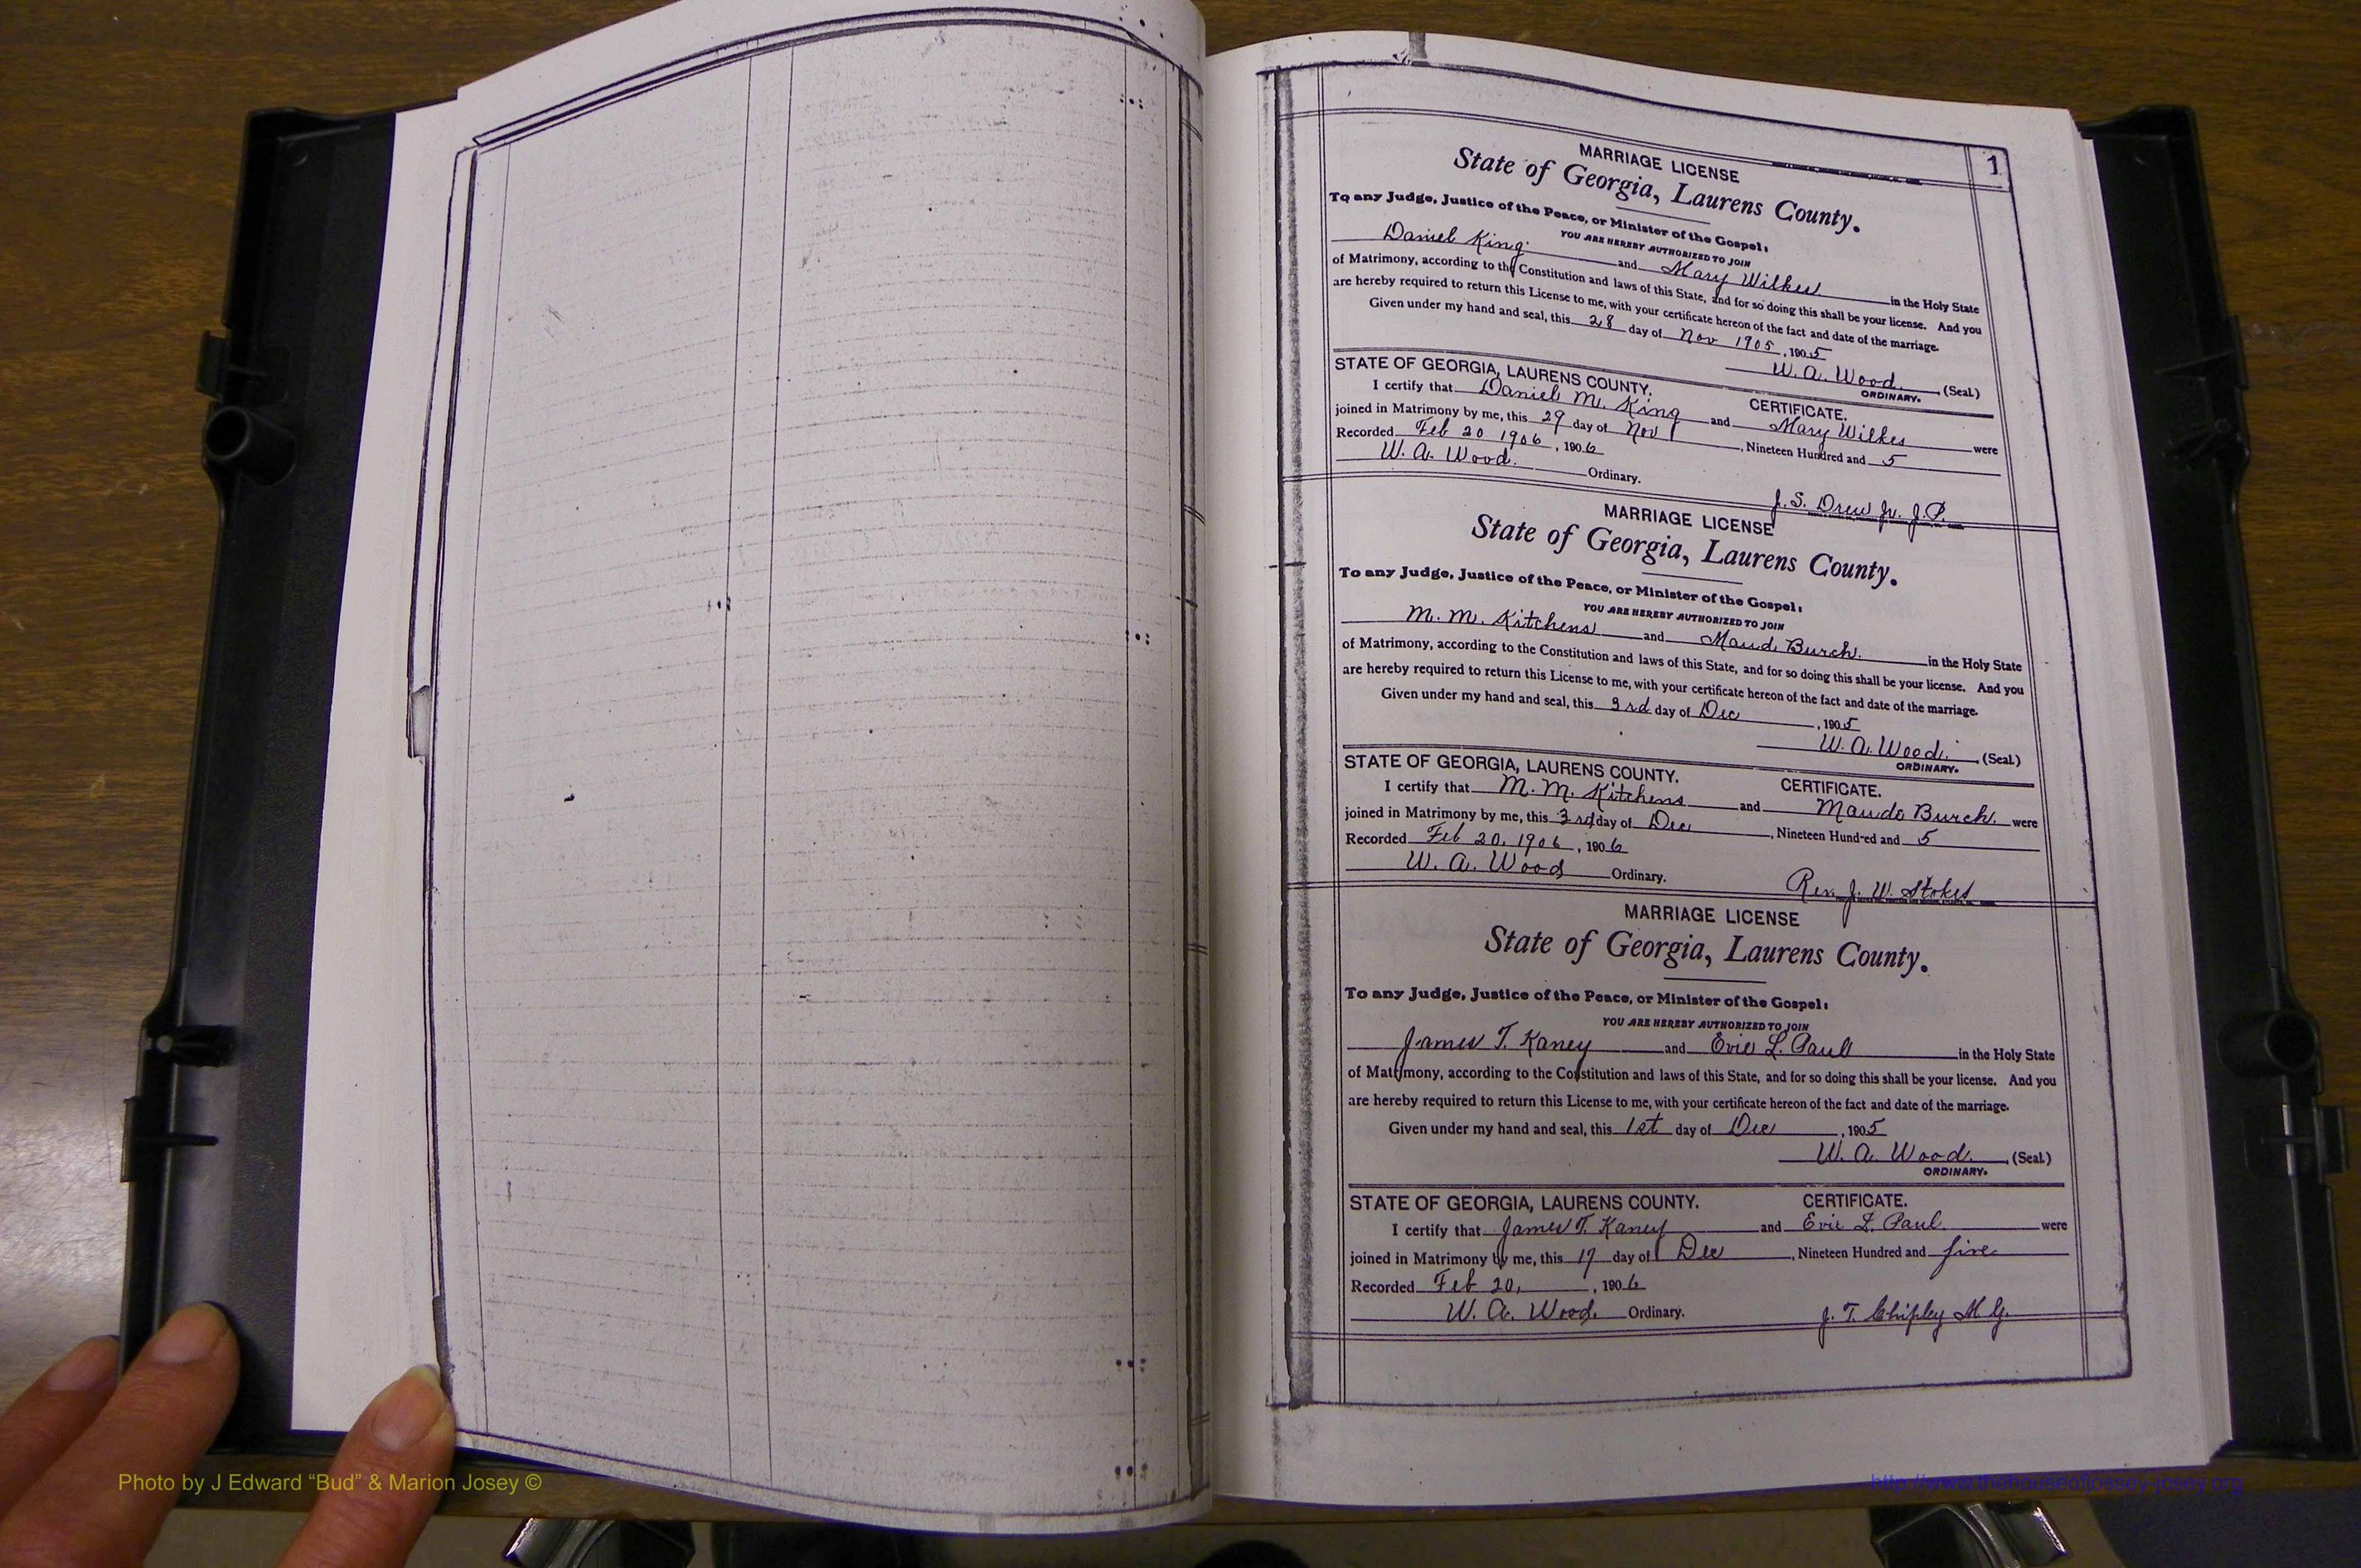 1
MARRIAGE LICENSE
State of Georgia, Laurens County.
To any Judge, Justice of the Peace, or Minister of the Gospel:
YOU ARE HEREBY AUTHORIZED TO JOIN
Daniel King and Mary Wilkes in the Holy State
of Matrimony, according to the Constitution and laws of this State, and for so doing this shall be your license. And you
are hereby required to return this License to me, with your certificate hereon of the fact and date of the marriage.
Given under my hand and seal, this 28 day of Nov 1905, 1905
W. A. Wood. (Seal.)
ORDINARY.
STATE OF GEORGIA, LAURENS COUNTY. CERTIFICATE.
I certify that Daniel M. King and Mary Wilkes were
joined in Matrimony by me, this 29 day of Nov, Nineteen Hundred and 5
Recorded Feb 20 1906, 1906
W. A. Wood. Ordinary.
J. S. Drew Jr. J. P.
MARRIAGE LICENSE
State of Georgia, Laurens County.
To any Judge, Justice of the Peace, or Minister of the Gospel:
YOU ARE HEREBY AUTHORIZED TO JOIN
M. M. Kitchens and Maud Burch. in the Holy State
of Matrimony, according to the Constitution and laws of this State, and for so doing this shall be your license. And you
are hereby required to return this License to me, with your certificate hereon of the fact and date of the marriage.
Given under my hand and seal, this 3rd day of Dec, 1905
W. A. Wood. (Seal.)
ORDINARY.
STATE OF GEORGIA, LAURENS COUNTY. CERTIFICATE.
I certify that M. M. Kitchens and Maude Burch. were
joined in Matrimony by me, this 3rd day of Dec, Nineteen Hundred and 5
Recorded Feb 20, 1906, 1906
W. A. Wood Ordinary.
Rev. J. W. Stokes
MARRIAGE LICENSE
State of Georgia, Laurens County.
To any Judge, Justice of the Peace, or Minister of the Gospel:
YOU ARE HEREBY AUTHORIZED TO JOIN
James T. Kaney and Evie L. Paul in the Holy State
of Matrimony, according to the Constitution and laws of this State, and for so doing this shall be your license. And you
are hereby required to return this License to me, with your certificate hereon of the fact and date of the marriage.
Given under my hand and seal, this 1st day of Dec, 1905
W. A. Wood. (Seal.)
ORDINARY.
STATE OF GEORGIA, LAURENS COUNTY. CERTIFICATE.
I certify that James T. Kaney and Evie L. Paul. were
joined in Matrimony by me, this 17 day of Dec, Nineteen Hundred and five
Recorded Feb 20, 1906
W. A. Wood. Ordinary.
J. T. Chipley M. G.
Photo by J Edward “Bud” & Marion Josey ©
http://www.thehouseofjossey-josey.org